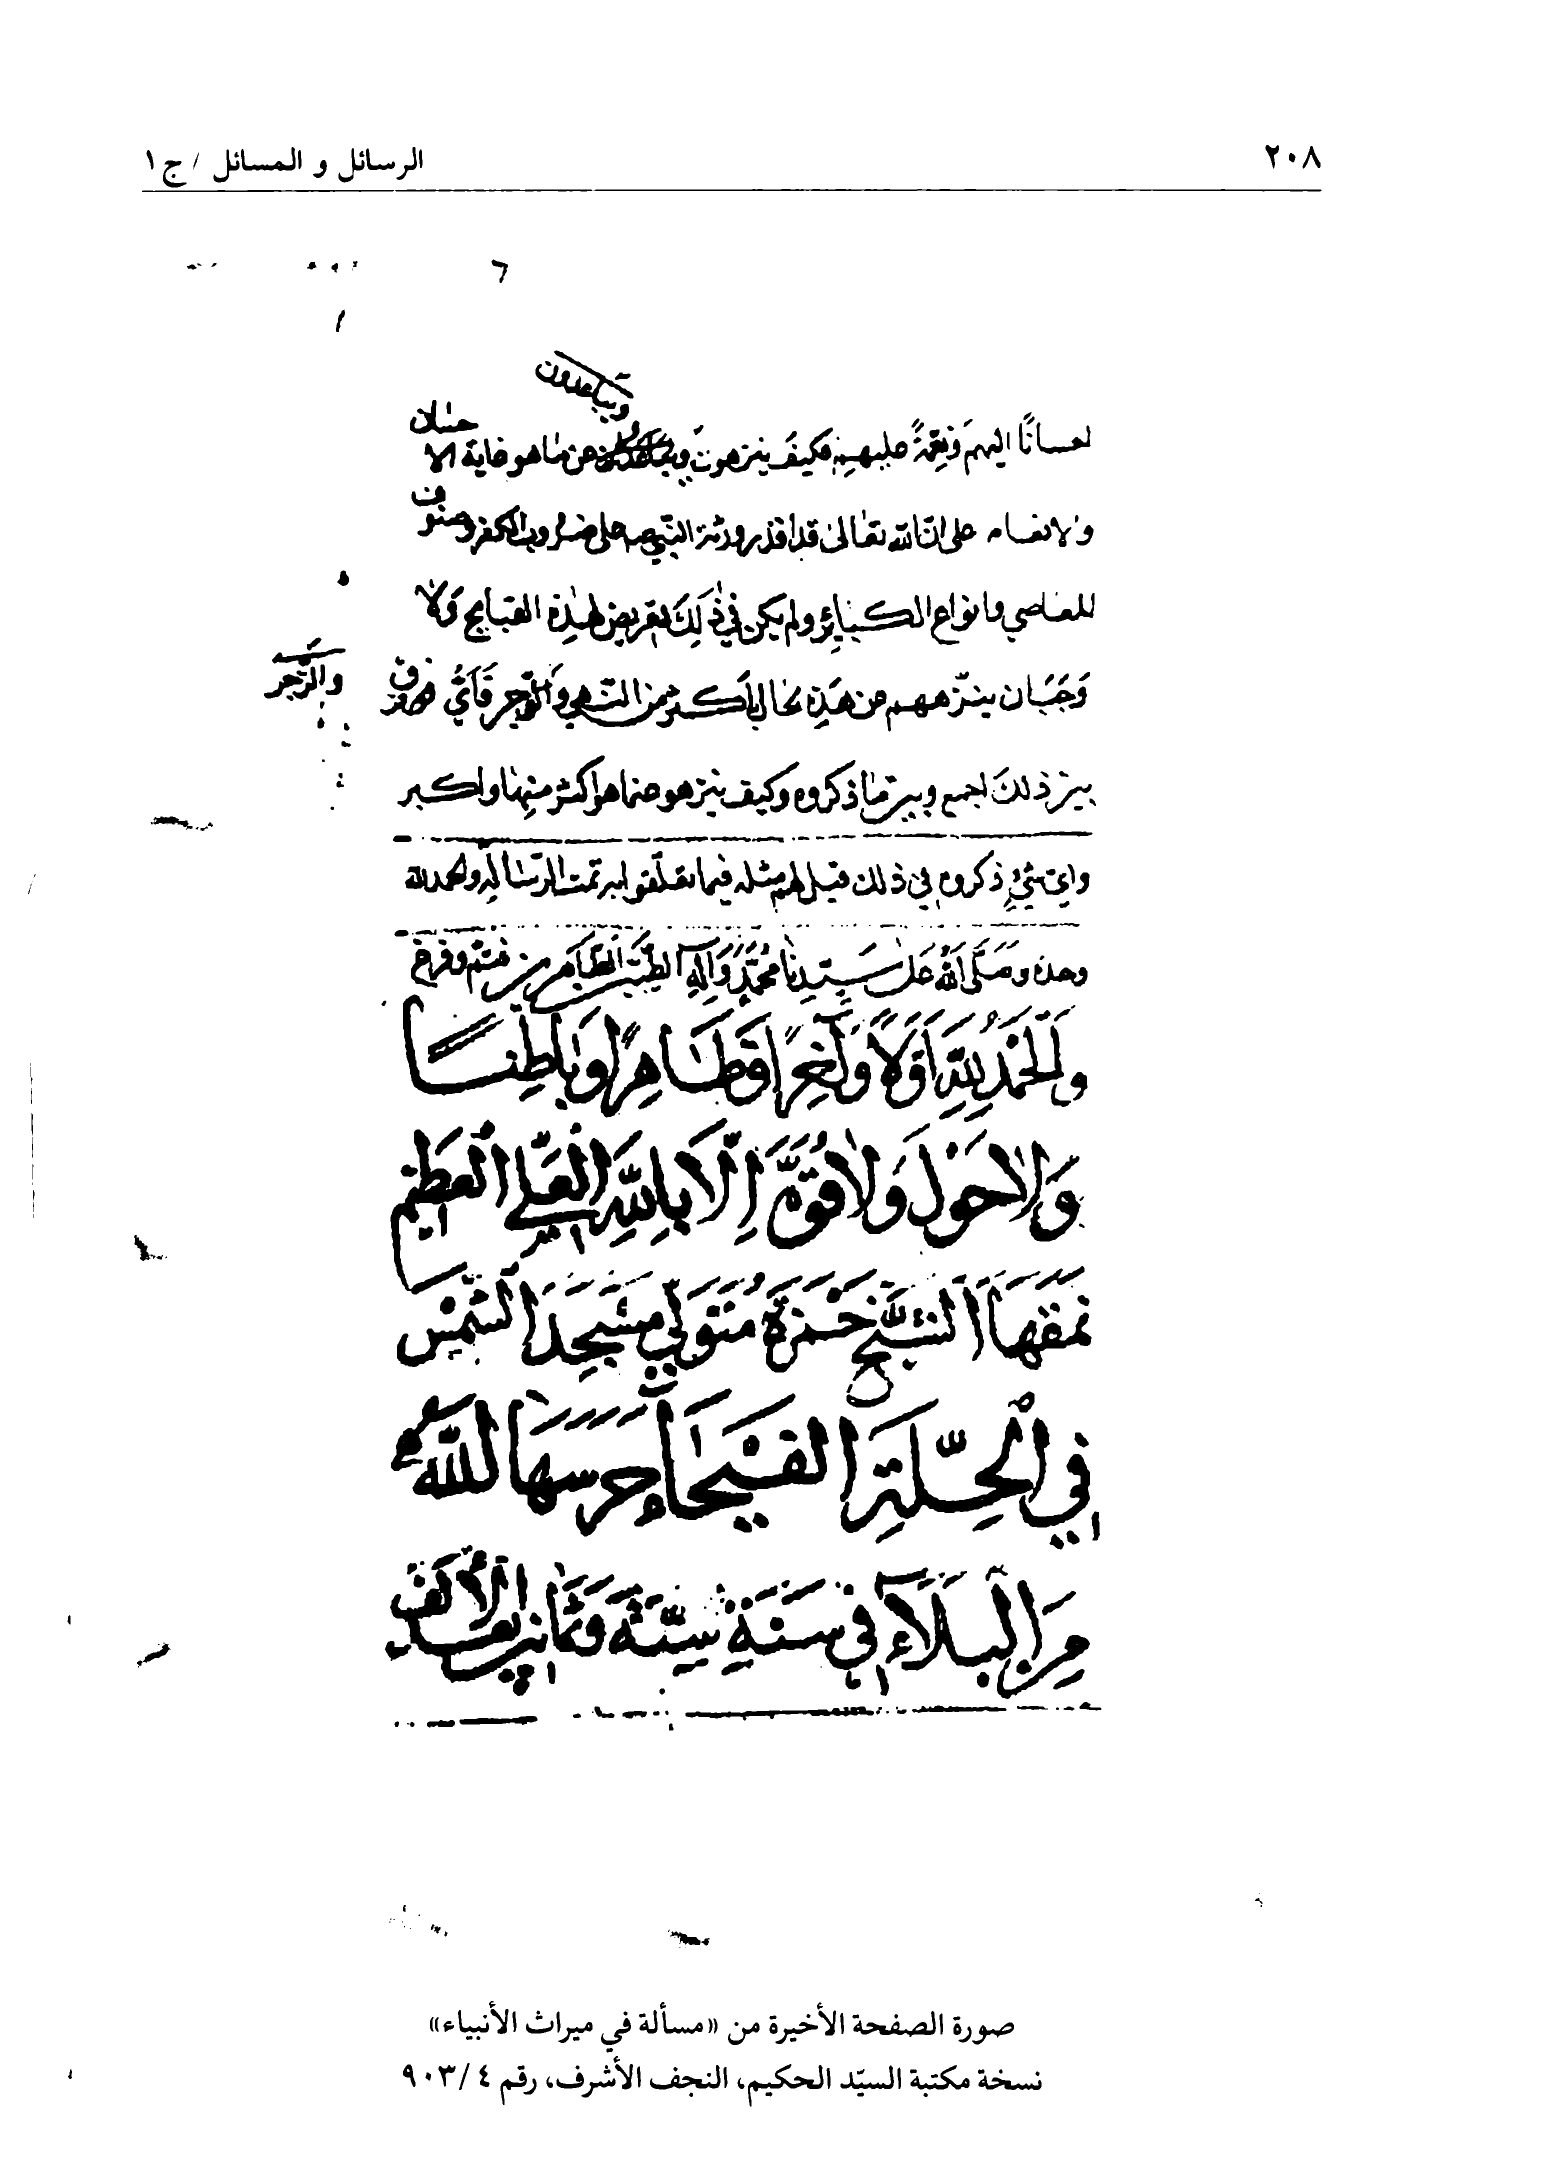 ٢٠٨
الرسائل و المسائل / ج ١
ويتباعدون
احسانًا اليهم ونعمةً عليهم فكيف ينزهون عن ما هو غاية الاحسان
والانعام على انّ الله تعالى قد اقدر ورثة النبي صه على ضروب الكفر وصنوف
المعاصي وانواع الكبائر ولم يكن في ذلك تعريض لهذه القبايح ولا
وجب ان ينزّههم من هذه بأكثر من النهي والزجر فأيّ فرق
والزّجر
بين ذلك اجمع وبين ما ذكروه وكيف ينزهو عما هو اكثر منها واكبر
واي شيءٍ ذكروه في ذلك قيل لهم مثله فيما تعلّقوا به تمت الرّسالة والحمد لله
وحده وصَلَّى اللهُ عَلى سَيّدِنَا مُحَمَّدٍ وَآلِهِ الطيّبين الطّاهرين
والحَمدُ لِلّهِ اَوّلاً وَآخِراً وَظَاهِراً وَبَاطِنًا
وَلا حَوْلَ وَلا قُوَّةَ اِلّا بِاللهِ العَليِ العَظِيمِ
نمقَهَا الشّيخ حَمْزة مُتَوَلّي مَسْجِدَ الشّمْس
في الحِلّةِ الفَيْحَاءِ حَرسَهَا الله
مِنَ البَلَاءِ في سَنَةِ سِتّة وَثَمانين بعد الألف
صورة الصفحة الأخيرة من «مسألة في ميراث الأنبياء»
نسخة مكتبة السيّد الحكيم، النجف الأشرف، رقم ٤/ ٩٠٣